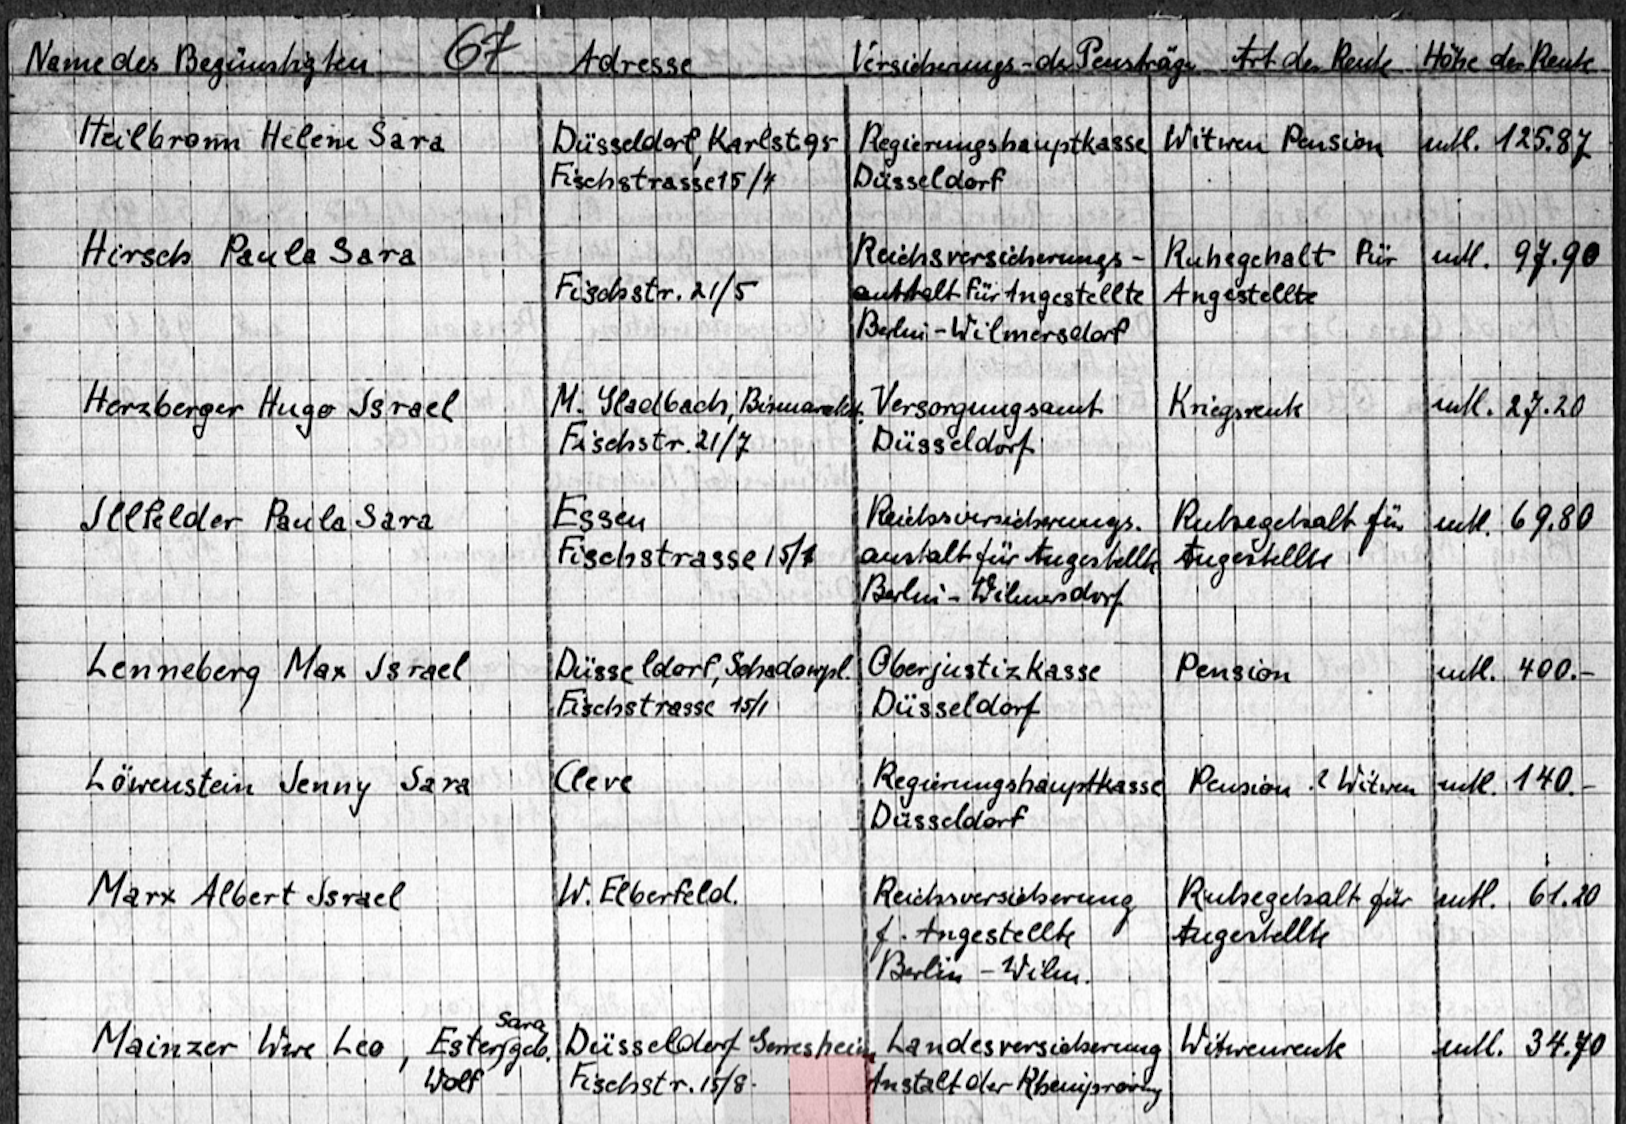 Name des Begünstigten 67 Adresse Versicherungs-de Pensträge Art der Rente Höhe der Rente
Heilbronn Helene Sara Düsseldorf, Karlst. 95 Regierungshauptkasse Witwen Pension mtl. 125.87
Fischstrasse 15/7 Düsseldorf
Hirsch Paula Sara Reichsversicherungs- Ruhegehalt für mtl. 97.90
Fischstr. 21/5 anstalt für Angestellte Angestellte
Berlin-Wilmersdorf
Herzberger Hugo Israel M. Gladbach, Bismarckst. Versorgungsamt Kriegsrente mtl. 27.20
Fischstr. 21/7 Düsseldorf
Illfelder Paula Sara Essen Reichsversicherungs. Ruhegehalt für mtl. 69.80
Fischstrasse 15/1 anstalt für Angestellte Angestellte
Berlin-Wilmersdorf
Lenneberg Max Israel Düsseldorf, Schadowpl. Oberjustizkasse Pension mtl. 400.-
Fischstrasse 15/1 Düsseldorf
Löwenstein Jenny Sara Cleve Regierungshauptkasse Pension ? Witwen mtl. 140.-
Düsseldorf
Marx Albert Israel W. Elberfeld. Reichsversicherung Ruhegehalt für mtl. 61.20
f. Angestellte Angestellte
Berlin-Wilm.
Sara
Mainzer Wwe Leo, Ester geb. Düsseldorf Gerresheim Landesversicherung Witwenrente mtl. 34.70
Wolf Fischstr. 15/8. Anstalt der Rheinprovinz